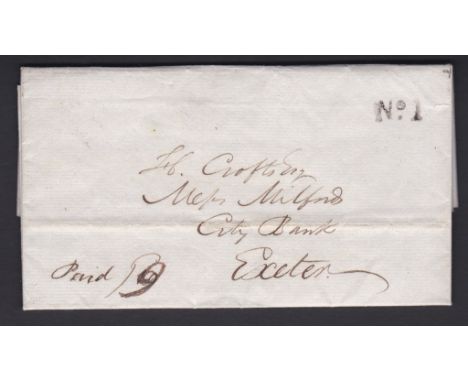 No. 1
H. Crofts Esq
Messrs Milford
City Bank
Exeter
Paid 9